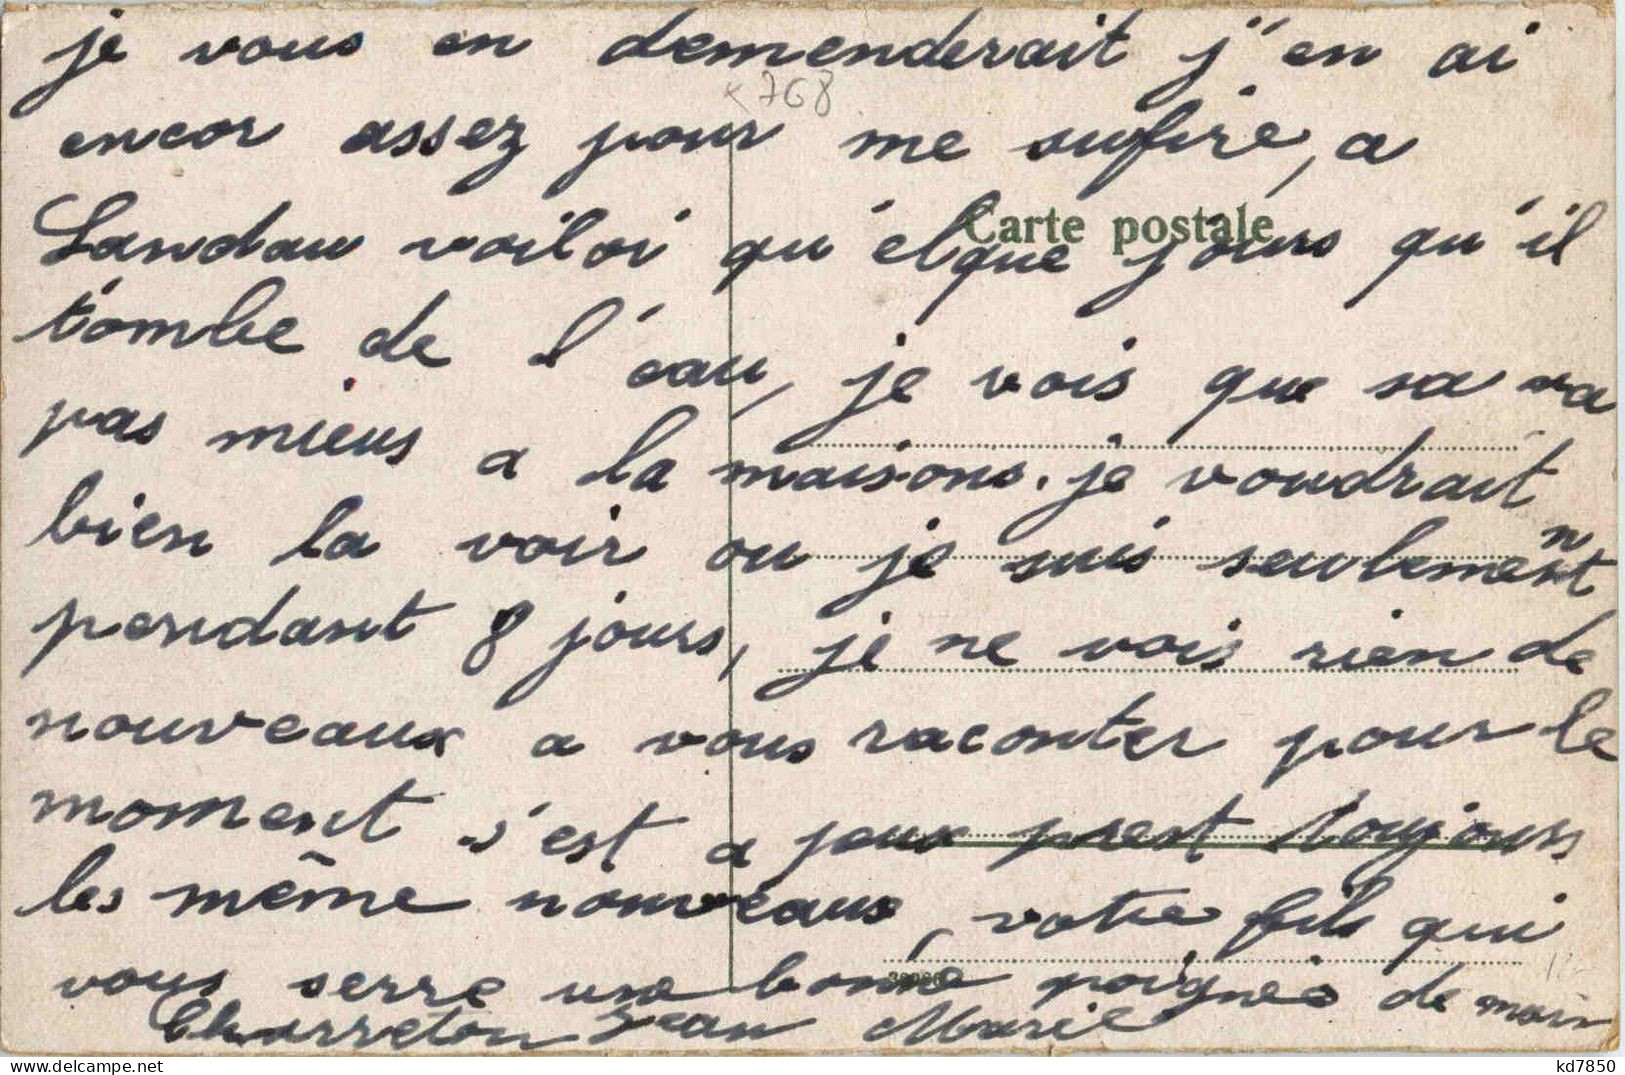 je vous en demenderait j'en ai
x 768
encor assez pour me sufire, a
Carte postale
Landau voiloi qu'elque jours qu'il
tombe de l'eau, je vois que sa va
pas mieus a la maisons. je voudrait
bien la voir ou je suis seulement
pendant 8 jours, je ne vois rien de
nouveaux a vous raconter pour le
moment s'est a peux prest toujours
les même nouveaux, votre fils qui
vous serre une bonne poignée de main
Charreton Jean Marie
kd7850